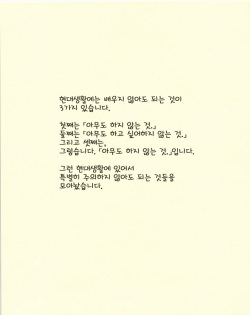 현대생활에는 배우지 않아도 되는 것이
3가지 있습니다.
첫째는 「아무도 하지 않는 것.」
둘째는 「아무도 하고 싶어하지 않는 것.」
그리고 셋째는,
그렇습니다. 「아무도 하지 않는 것.」입니다.
그런 현대생활에 있어서
특별히 주의하지 않아도 되는 것들을
모아봤습니다.